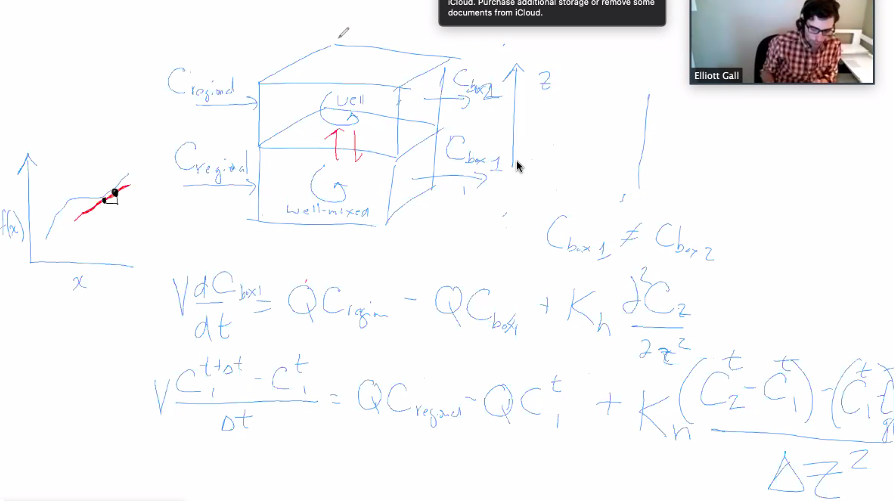 iCloud. Purchase additional storage or remove some
documents from iCloud.
Elliott Gall
C regional
well
C box 2
z
C regional
C box 1
well-mixed
f(x)
x
C box 1 ≠ C box 2
V dC box 1 / dt = Q C region - Q C box 1 + K h ∂²C z / ∂z²
V C 1 ^t+Δt - C 1 ^t / Δt = Q C regional - Q C 1 ^t + K h (C 2 ^t - C 1 ^t) - (C 1 ^t / Δz²